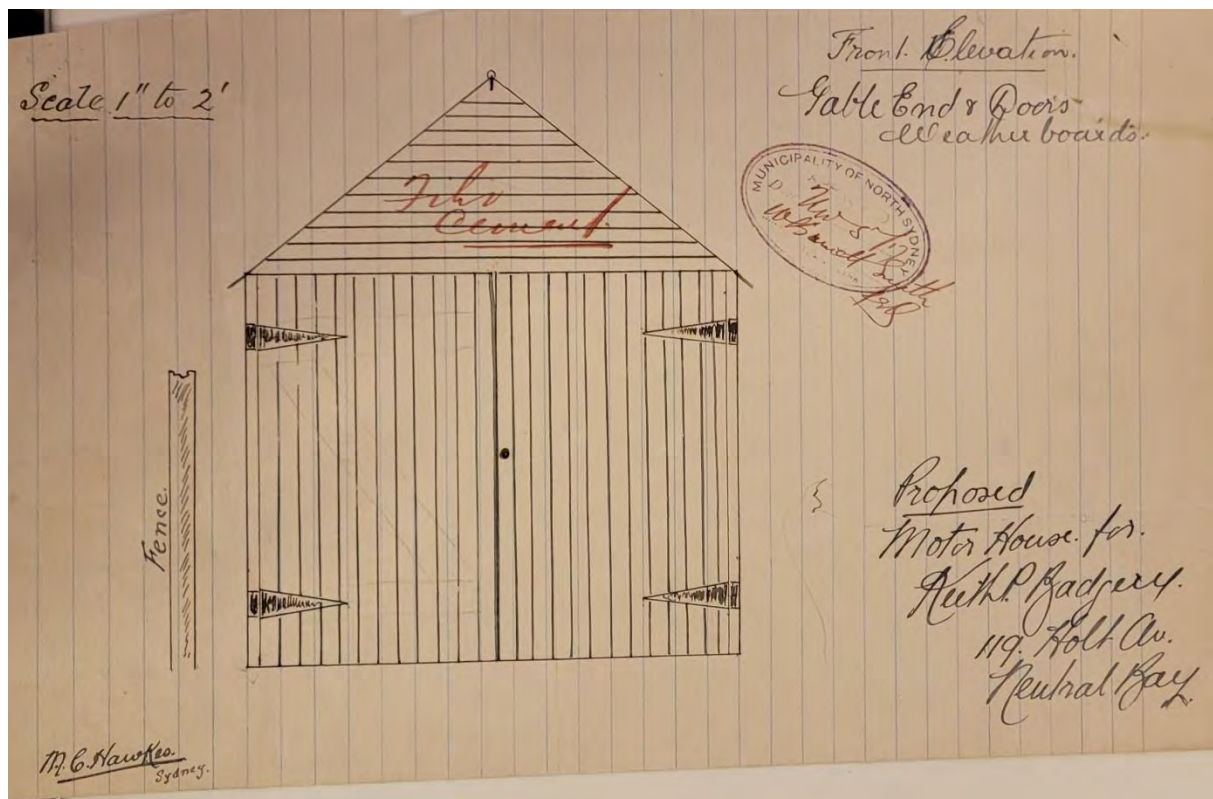 Scale 1" to 2'
Front Elevation.
Gable End & Doors
Weatherboards.
MUNICIPALITY OF NORTH SYDNEY
Fibro
Cement
Fence.
Proposed
Motor House for.
Keith P. Badgery.
119. Holt Av.
Neutral Bay
M.C. Hawkes.
Sydney.